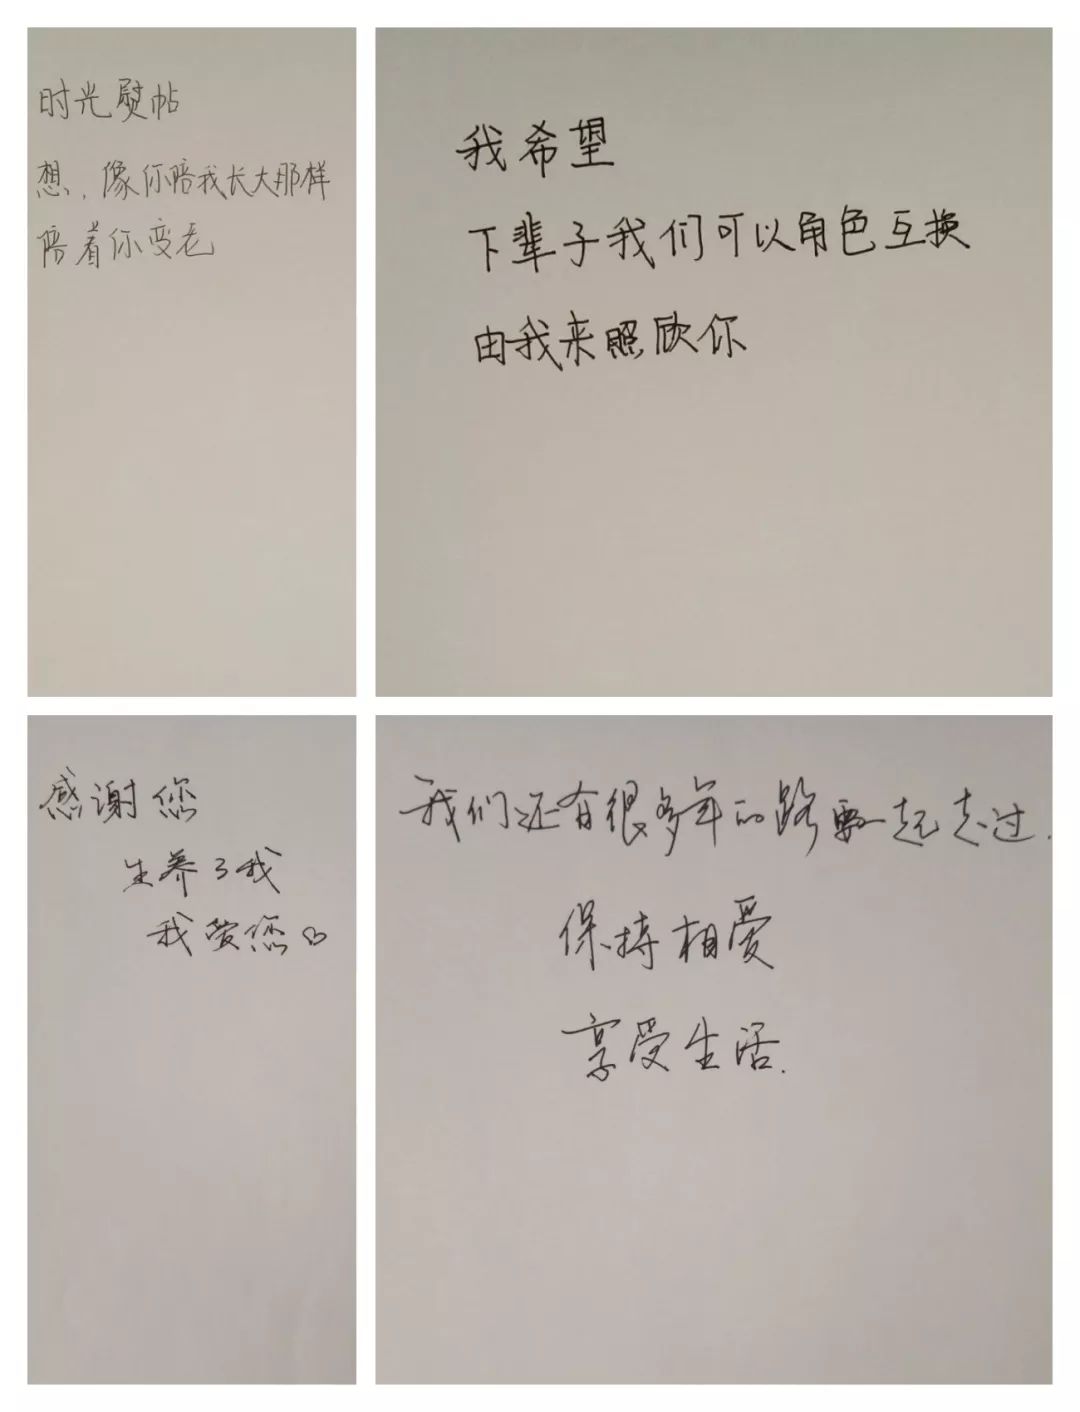 时光熨帖
想,像你陪我长大那样
陪着你变老
我希望
下辈子我们可以角色互换
由我来照顾你
感谢您
生养了我
我爱您♡
我们还有很多年的路要一起走过.
保持相爱
享受生活.